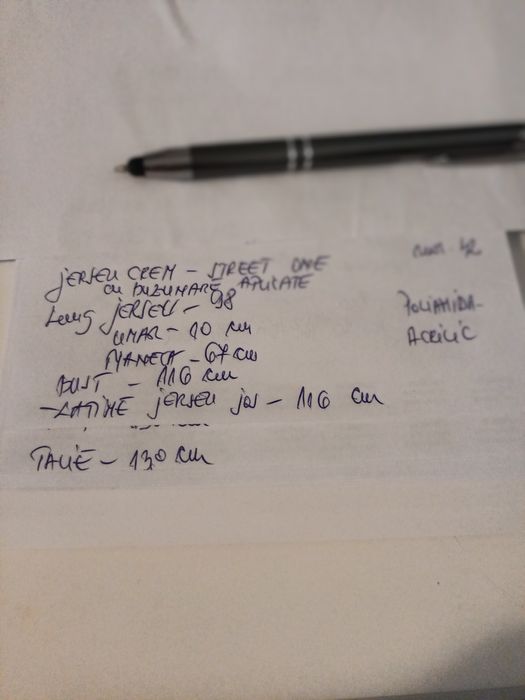 JERSEU CREM - STREET ONE
CU BUZUNARE APLICATE
Lung JERSEU - 98
UMAR - 10 cm
MANECA - 67 cm
BUST - 116 cm
LATIME JERSEU JOS - 116 cm
TALIE - 130 cm
42
POLIAMIDA-
ACRILIC